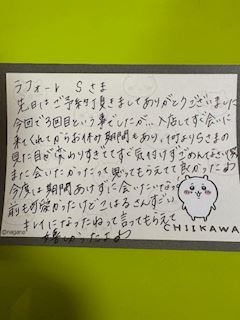 ラフォーレ Sさま
先日はご予約頂きましてありがとうございました
今回で3回目という事でしたが… 入店してすぐ会いに
来てくれてからお休み期間もあり、何よりSさまの
見た目が変わりすぎててすぐ気付けずごめんなさい
また会いたかったって思ってもらえてて良かったよ
今度は期間あけずに会いたいな
前も可愛かったけどこはるさんすごい
キレイになったねって言ってもらえて
嬉しかったよ
CHIIKAWA
©nagano